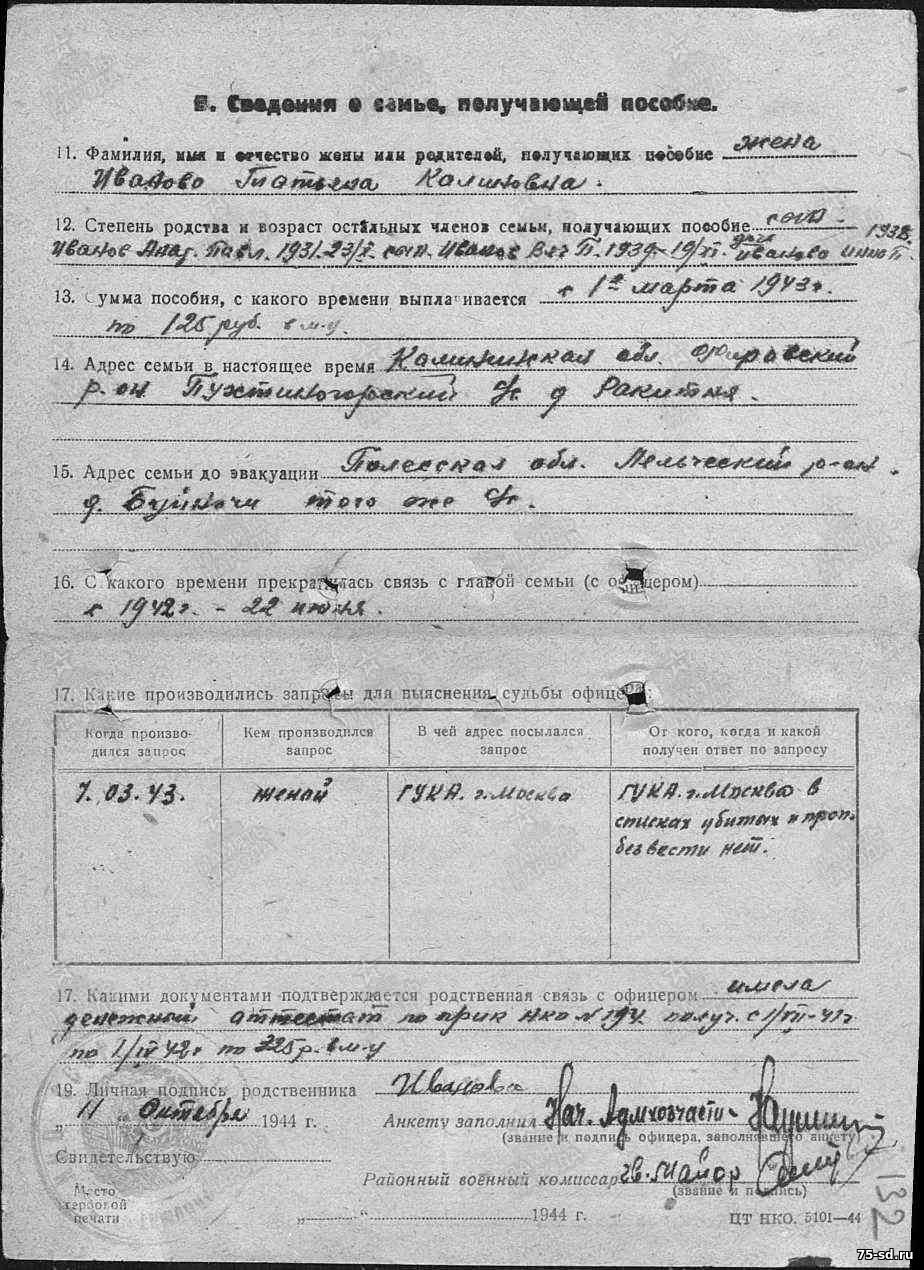 Б. Сведения о семье, получающей пособие.
11. Фамилия, имя и отчество жены или родителей, получающих пособие жена
Иванова Татьяна Калиновна.
12. Степень родства и возраст остальных членов семьи, получающих пособие сын
Иванов Анат. Павл. 1931. 23/X. сын. Иванов П. 1939 19/XI. дочь Иванова 1938.
13. Сумма пособия, с какого времени выплачивается с 1го марта 1943 г.
по 125 руб. в м-ц.
14. Адрес семьи в настоящее время Калининская обл. Фировский
р-он Пухтиногорский с/с д Ракитня.
15. Адрес семьи до эвакуации Полесская обл. Лельческий р-он.
д. Буйновичи того же с/с.
16. С какого времени прекратилась связь с главой семьи (с офицером)
с 1942 г. - 22 июня.
17. Какие производились запросы для выяснения судьбы офицера:
Когда произво-
дился запрос
Кем производился
запрос
В чей адрес посылался
запрос
От кого, когда и какой
получен ответ по запросу
7. 03. 43.
женой
ГУКА. г. Москва
ГУКА. г. Москва в
списках убитых и проп.
без вести нет.
17. Какими документами подтверждается родственная связь с офицером имела
денежный аттестат по прик НКО N 194 получ. с 1/VII-41 г
по 1/IV 42 г по 325 р. в м-ц
19. Личная подпись родственника Иванова
„ 11 Октября 1944 г.
Анкету заполнил Нач. Адмхозчасти
(звание и подпись офицера, заполнявшего анкету)
Свидетельствую
Районный военный комиссар гв. Майор
(звание и подпись)
Место
гербовой
печати
„ “ 1944 г.
ЦТ НКО. 5101—44
132
75-sd.ru